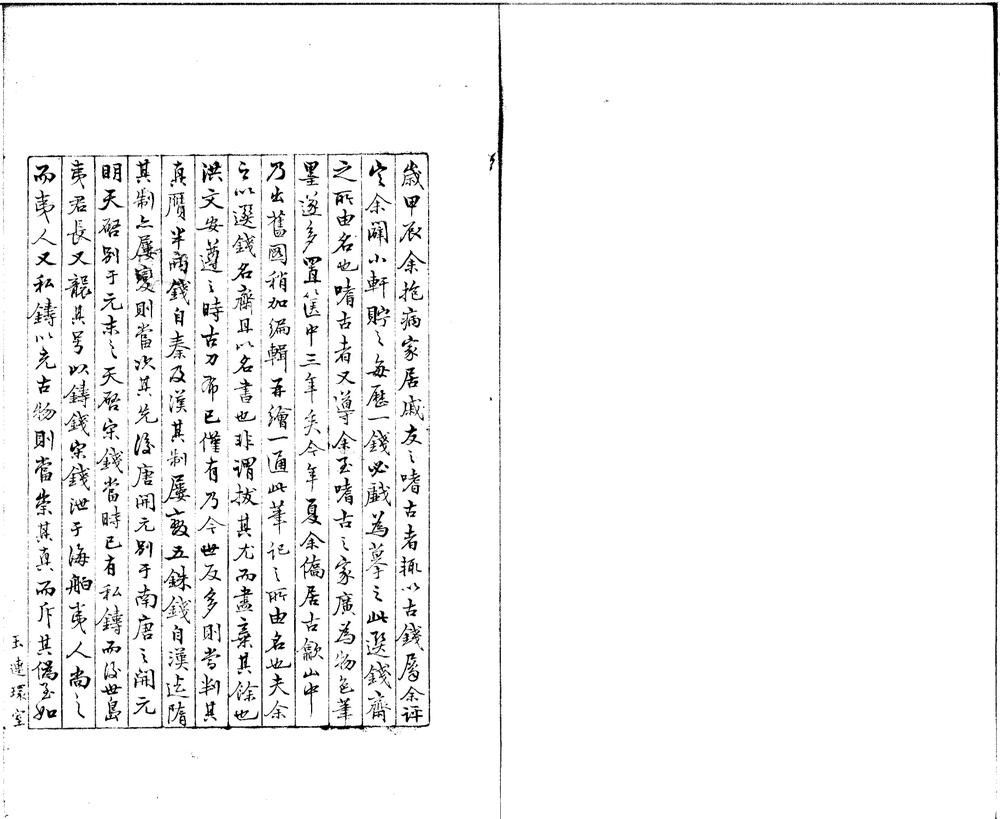 歲甲辰余抱病家居戚友之嗜古者輒以古錢屬余評
定余闢小軒貯之每歷一錢必戲為摹之此選錢齋
之所由名也嗜古者又導余至嗜古之家廣為物色筆
墨遂多置篋中三年矣今年夏余僑居古歙山中
乃出舊圖稍加編輯并繪一通此筆記之所由名也夫余
之以選錢名齋且以名書也非謂拔其尤而盡棄其餘也
洪文安遵之時古刀布已僅有乃今世反多則當判其
真贋半兩錢自秦及漢其制屢變五銖錢自漢迄隋
其制亦屢變則當次其先後唐開元別于南唐之開元
明天啓別于元末之天啓宋錢當時已有私鑄而後世島
夷君長又襲其號以鑄錢宋錢泄于海舶夷人尚之
而夷人又私鑄以充古物則當崇其真而斥其僞至如
玉連環室